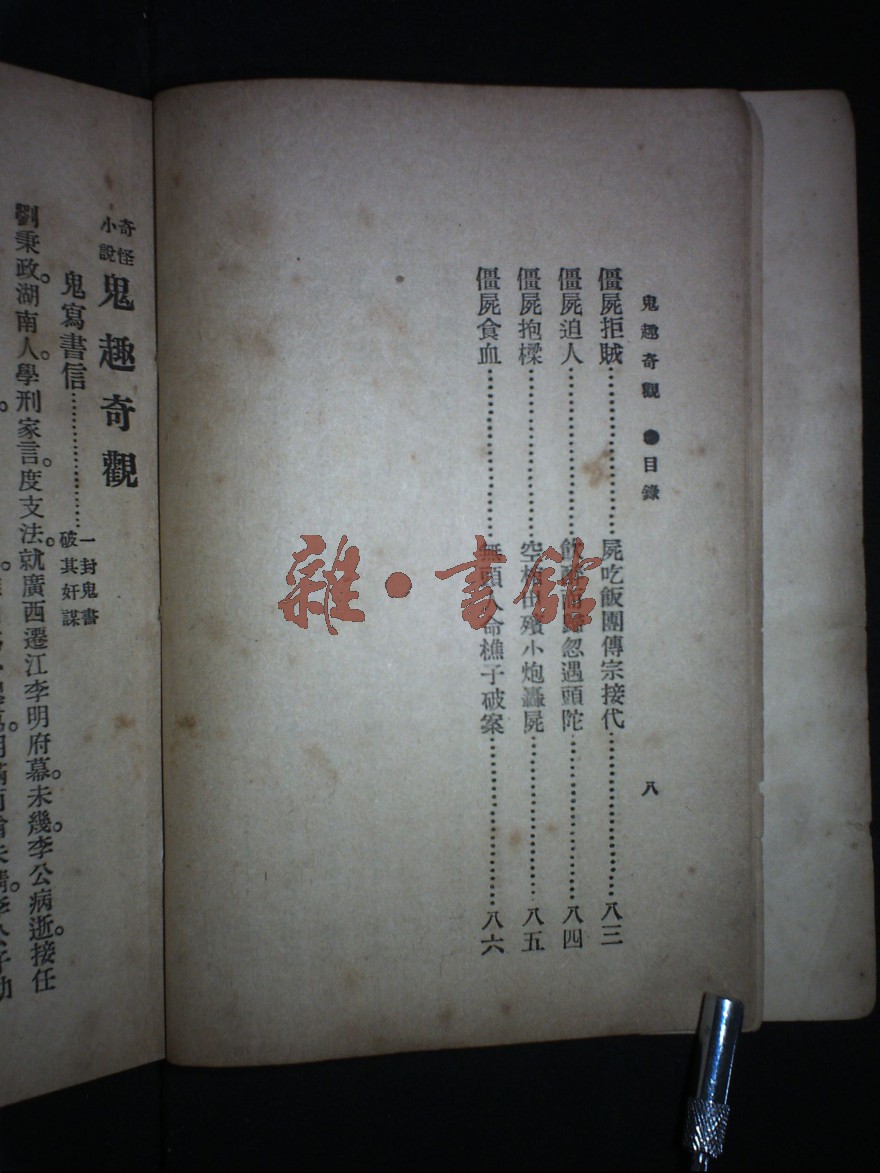 鬼趣奇觀 ●目錄 八
僵屍拒賊⋯⋯⋯⋯屍吃飯團傳宗接代⋯⋯⋯⋯八三
僵屍迫人⋯⋯⋯⋯飲酒而歸忽遇頭陀⋯⋯⋯⋯八四
僵屍抱樑⋯⋯⋯⋯空棺出殯小炮轟屍⋯⋯⋯⋯八五
僵屍食血⋯⋯⋯⋯無頭人命樵子破案⋯⋯⋯⋯八六
奇怪小說 鬼趣奇觀
鬼寫書信⋯⋯⋯⋯一封鬼書破其奸謀
劉秉政。湖南人。學刑家言。度支法。就廣西遷江李明府幕。未幾。李公病逝。接任
雜·書館